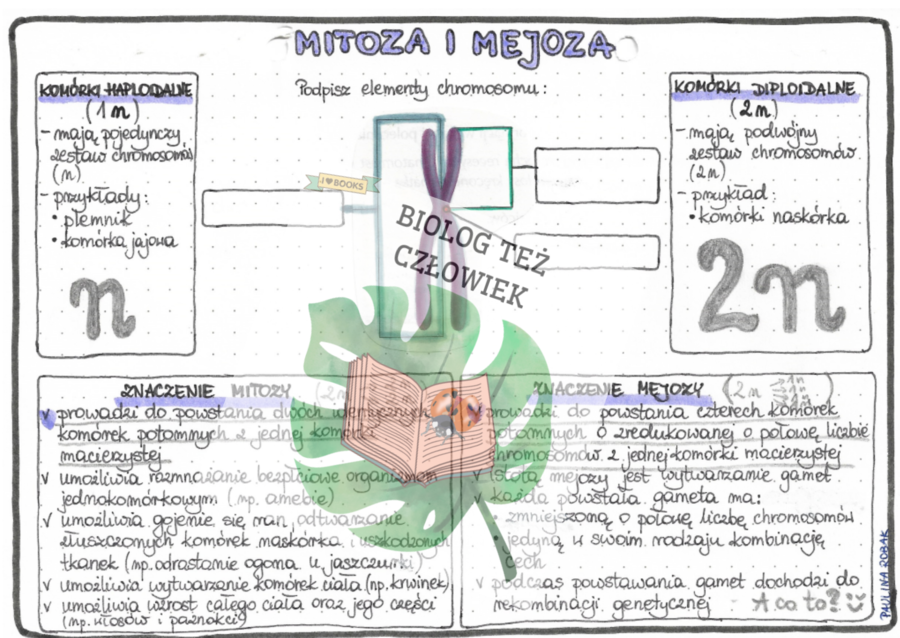 MITOZA I MEJOZA
KOMÓRKI HAPLOIDALNE
(1n)
- mają pojedynczy
zestaw chromosomów
(n)
- przykłady:
• plemnik
• komórka jajowa
n
Podpisz elementy chromosomu:
I ♥ BOOKS
BIOLOG TEŻ
CZŁOWIEK
KOMÓRKI DIPLOIDALNE
(2n)
- mają podwójny
zestaw chromosomów
(2n)
- przykład:
• komórki naskórka
2n
ZNACZENIE MITOZY (2n
v prowadzi do powstania dwóch identycznych
komórek potomnych z jednej komórki
macierzystej
v umożliwia rozmnażanie bezpłciowe organizmom
jednokomórkowym (np. amebie)
v umożliwia gojenie się ran, odtwarzanie
złuszczonych komórek naskórka i uszkodzonych
tkanek (np. odrastanie ogona u jaszczurki)
v umożliwia wytwarzanie komórek ciała (np. krwinek)
v umożliwia wzrost całego ciała oraz jego części
(np. włosów i paznokci)
ZNACZENIE MEJOZY (2n → 1n)
v prowadzi do powstania czterech komórek
potomnych o zredukowanej o połowę liczbie
chromosomów z jednej komórki macierzystej
v istotą mejozy jest wytwarzanie gamet
v każda powstała gameta ma:
• zmniejszoną o połowę liczbę chromosomów
• jedyną w swoim rodzaju kombinację
cech
v podczas powstawania gamet dochodzi do
rekombinacji genetycznej - A co to?
PAULINA ROBAK